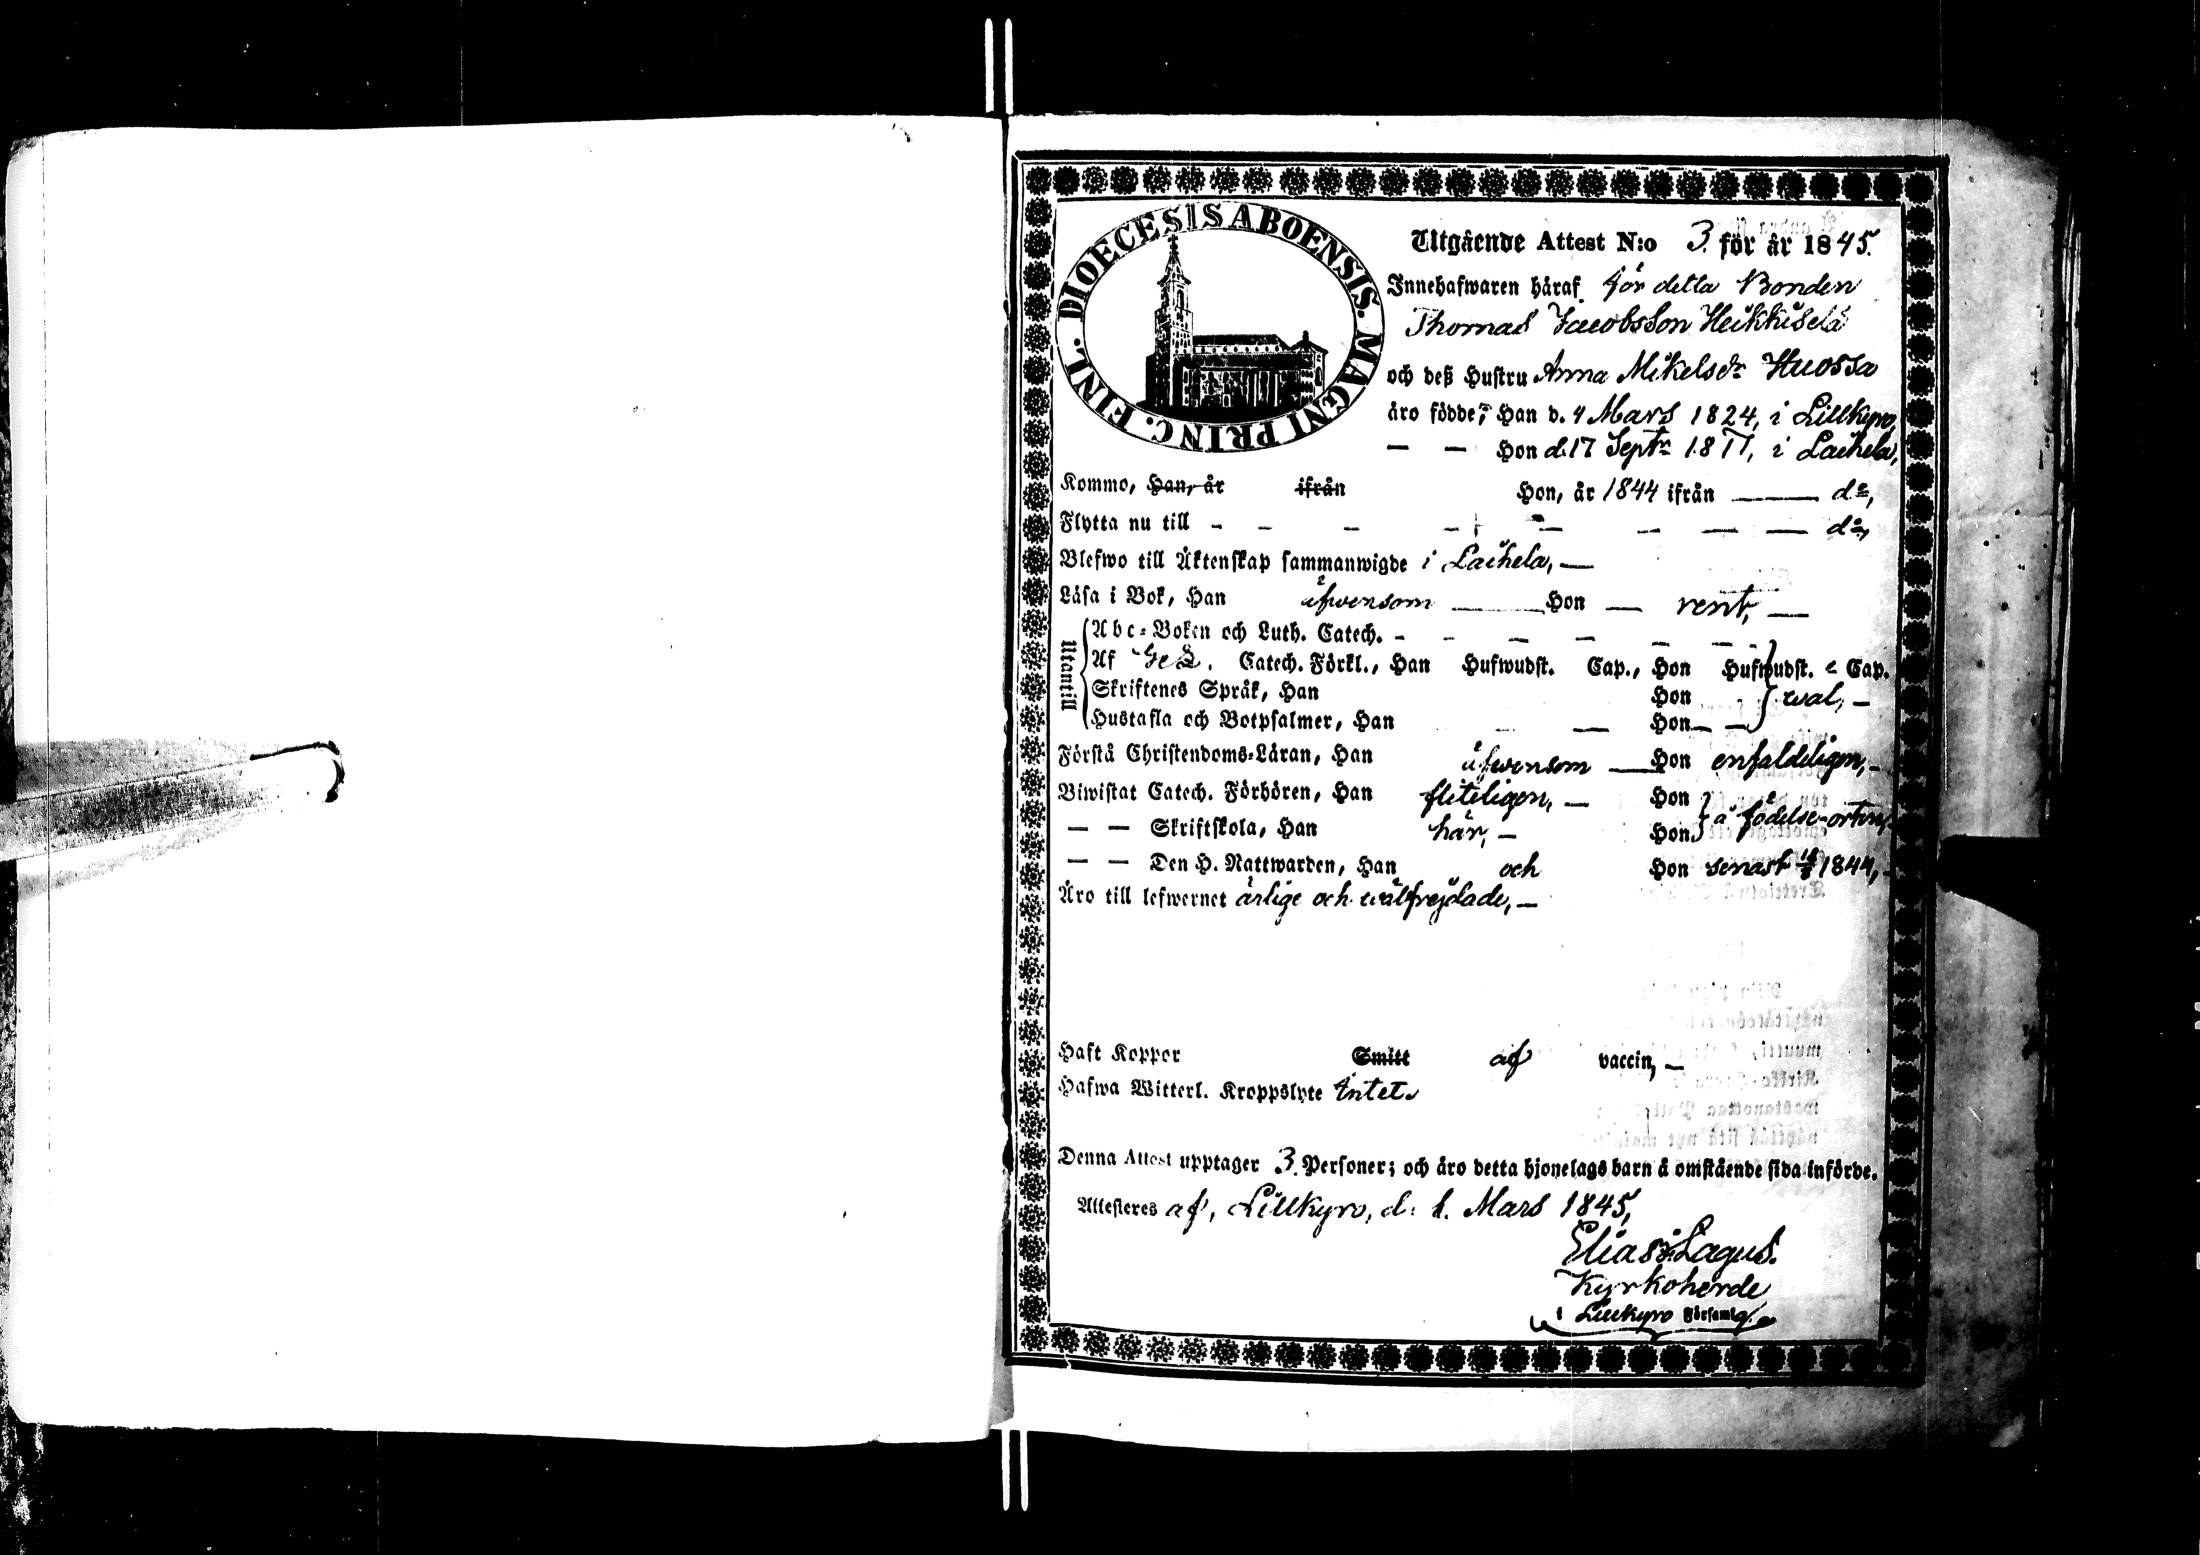 DIOECESIS ABOENSIS. MAGNI PRINC. FINL.
Utgående Attest N:o 3. för år 1845.
Innehafwaren häraf för detta Bonden
Thomas Jacobsson Heikkiselä
och deß Hustru Anna Mikelsdr Huossa
äro födde, Han d. 4 Mars 1824, i Lillkyro,
— — Hon d. 17 Septr 1817, i Laihela,
Kommo, Han, år ifrån Hon, år 1844 ifrån —— do,
Flytta nu till - - — - — — — — do,
Blefwo till Äktenskap sammanwigde i Laihela, —
Läsa i Bok, Han äfwensom —— Hon — rent, —
Utantill
Abc-Boken och Luth. Catech. - - — — — - -
Af Catech. Förkl., Han Hufwudst. Cap., Hon Hufwudst. Cap.
Skriftenes Språk, Han Hon wal, —
Hustafla och Botpsalmer, Han — Hon — —
Förstå Christendoms-Läran, Han äfwensom — Hon enfaldeligen, —
Biwistat Catech. Förhören, Han fliteligen, — Hon
å födelse-orten,
— — Skriftskola, Han här, — Hon
— — Den H. Nattwarden, Han och Hon senast 1844, -
Äro till lefwernet ärlige och wälfrejdade, —
Haft Koppor Smitt af vaccin, —
Hafwa Witterl. Kroppslyte Intet.
Denna Attest upptager 3. Personer; och äro detta hjonelags barn å omstående sida införde.
Attesteres af, Lillkyro, d. 1. Mars 1845,
Elias Lagus.
Kyrkoherde
i Lillkyro Församlg.